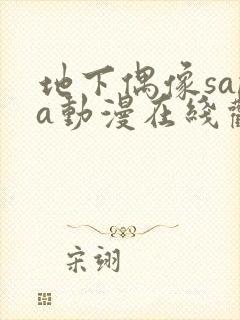 地下偶像sa
a動漫在綫
宋翊